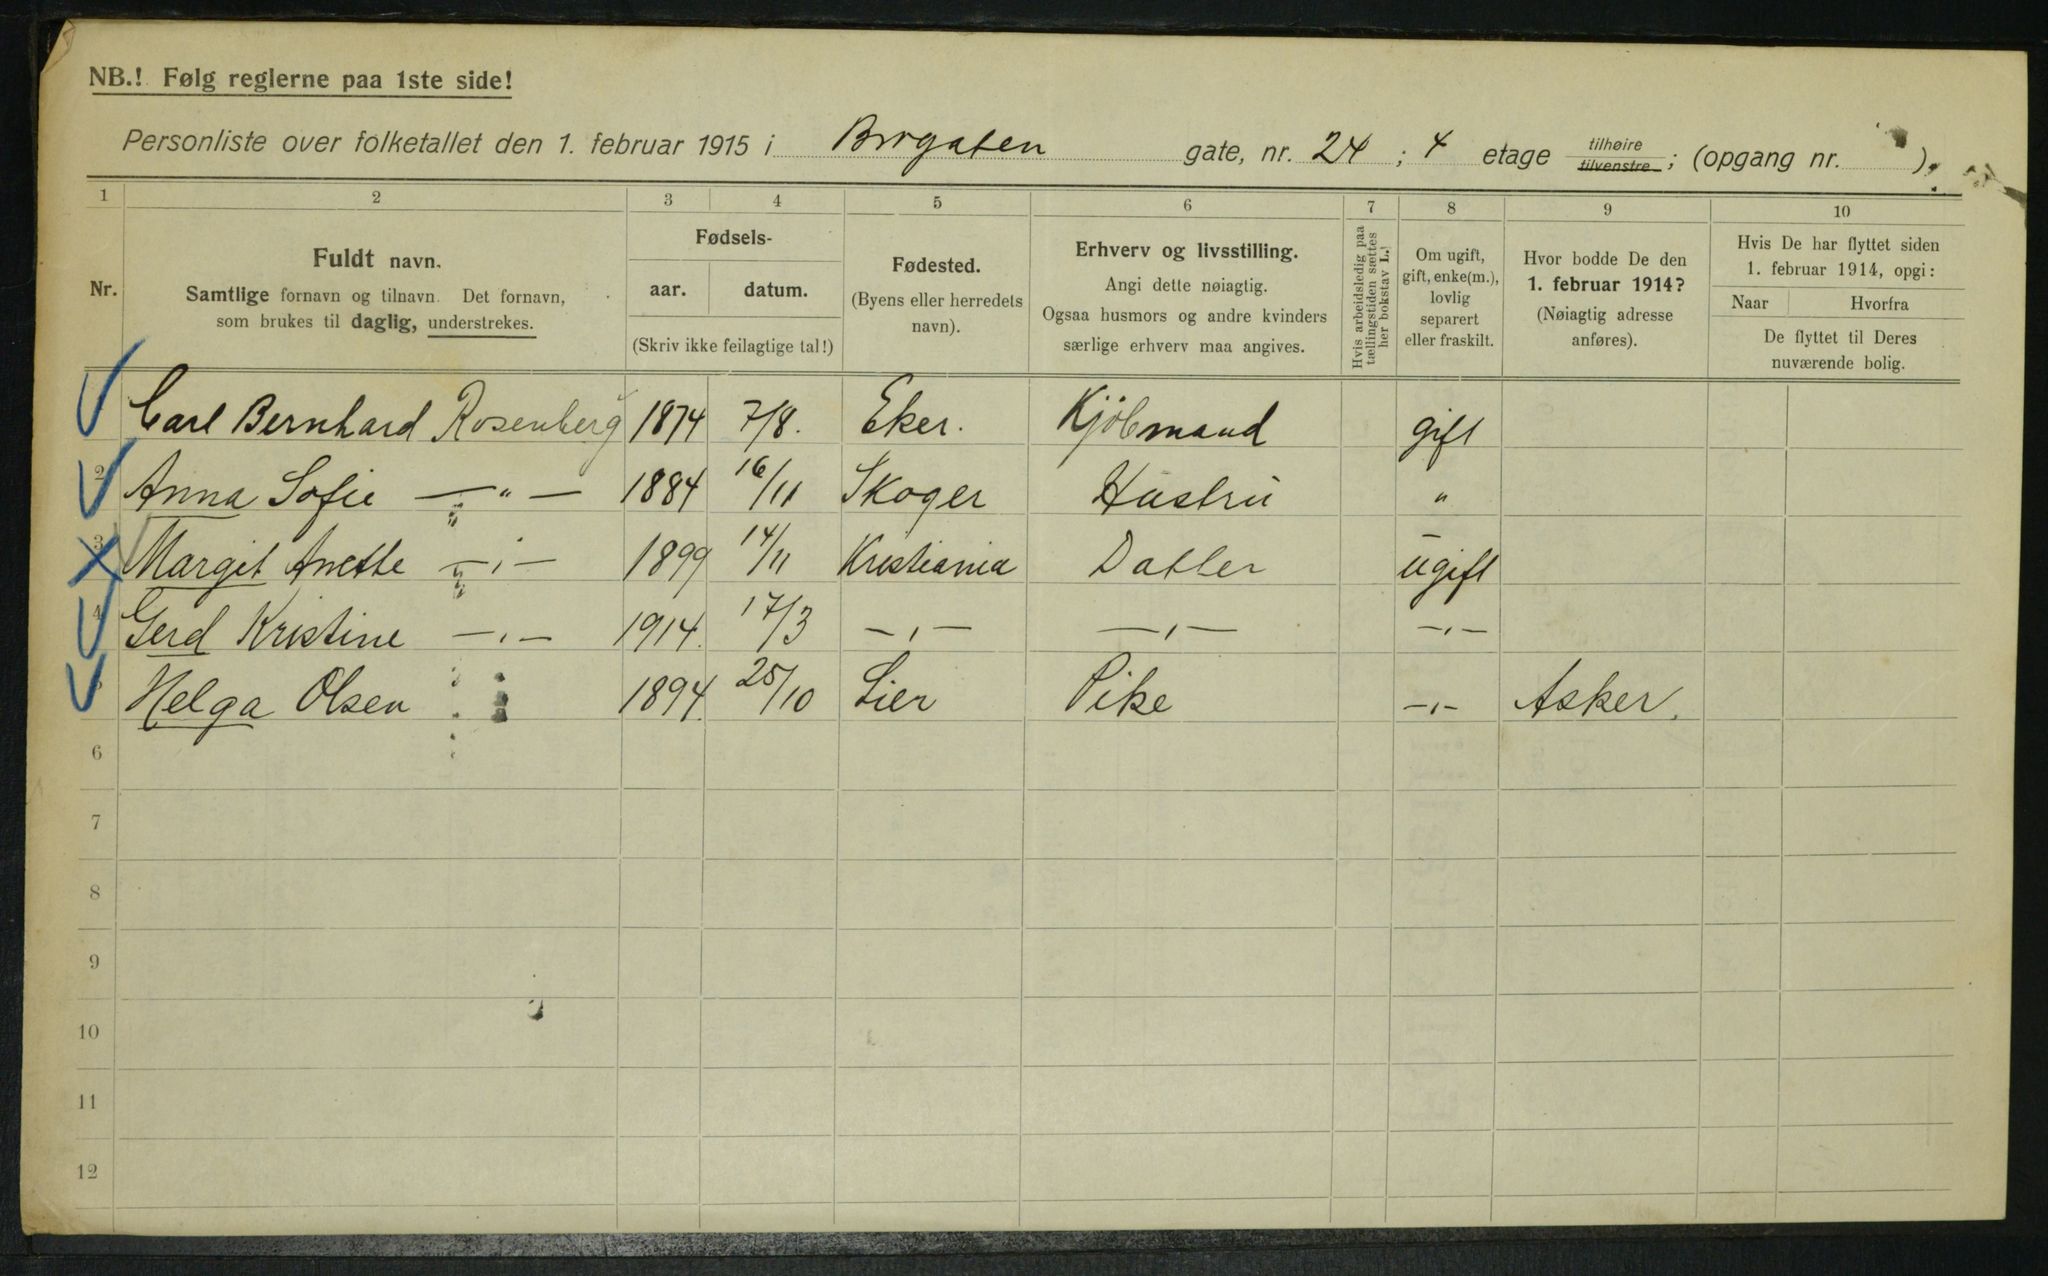 NB.! Følg reglerne paa 1ste side!
Personliste over folketallet den 1. februar 1915 i Brogaten gate, nr. 24 ; 4 etage tilhøire tilvenstre ; (opgang nr. ).
1 2 3 4 5 6 7 8 9 10
Nr.
Fuldt navn.
Samtlige fornavn og tilnavn. Det fornavn,
som brukes til daglig, understrekes.
Fødsels-
aar. datum.
(Skriv ikke feilagtige tal!)
Fødested.
(Byens eller herredets
navn).
Erhverv og livsstilling.
Angi dette nøiagtig.
Ogsaa husmors og andre kvinders
særlige erhverv maa angives.
Hvis arbeidsledig paa
tællingstiden sættes
her bokstav L.!
Om ugift,
gift, enke(m.),
lovlig
separert
eller fraskilt.
Hvor bodde De den
1. februar 1914?
(Nøiagtig adresse
anføres).
Hvis De har flyttet siden
1. februar 1914, opgi:
Naar Hvorfra
De flyttet til Deres
nuværende bolig.
Carl Bernhard Rosenberg 1874 7/8. Eker. Kjöbmand gift
2 Anna Sofie —„— 1884 16/11 Skoger Hustru "
3 Margit Anette —„— 1899 14/11 Kristiania Datter ugift
4 Gerd Kristine —„— 1914. 17/3 —„— —„— —„—
5 Helga Olsen 1894. 25/10 Lier Pike —„— Asker.
6
7
8
9
10
11
12